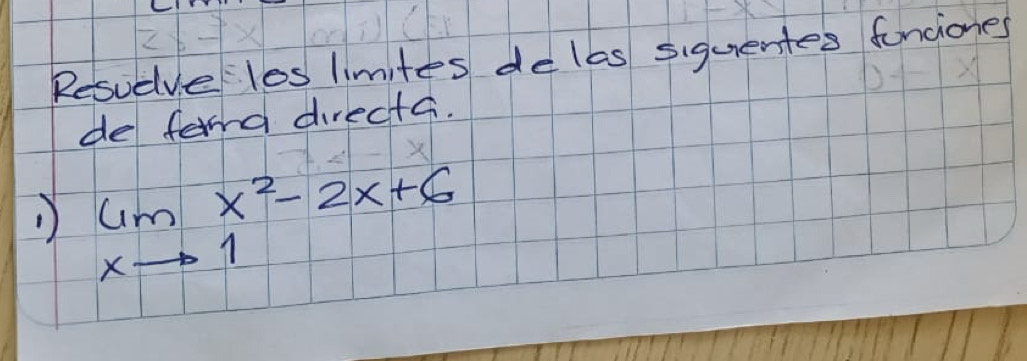 Resuelve los limites de las siguientes funciones
de forma directa.
1) Lim x²- 2x+6
x → 1